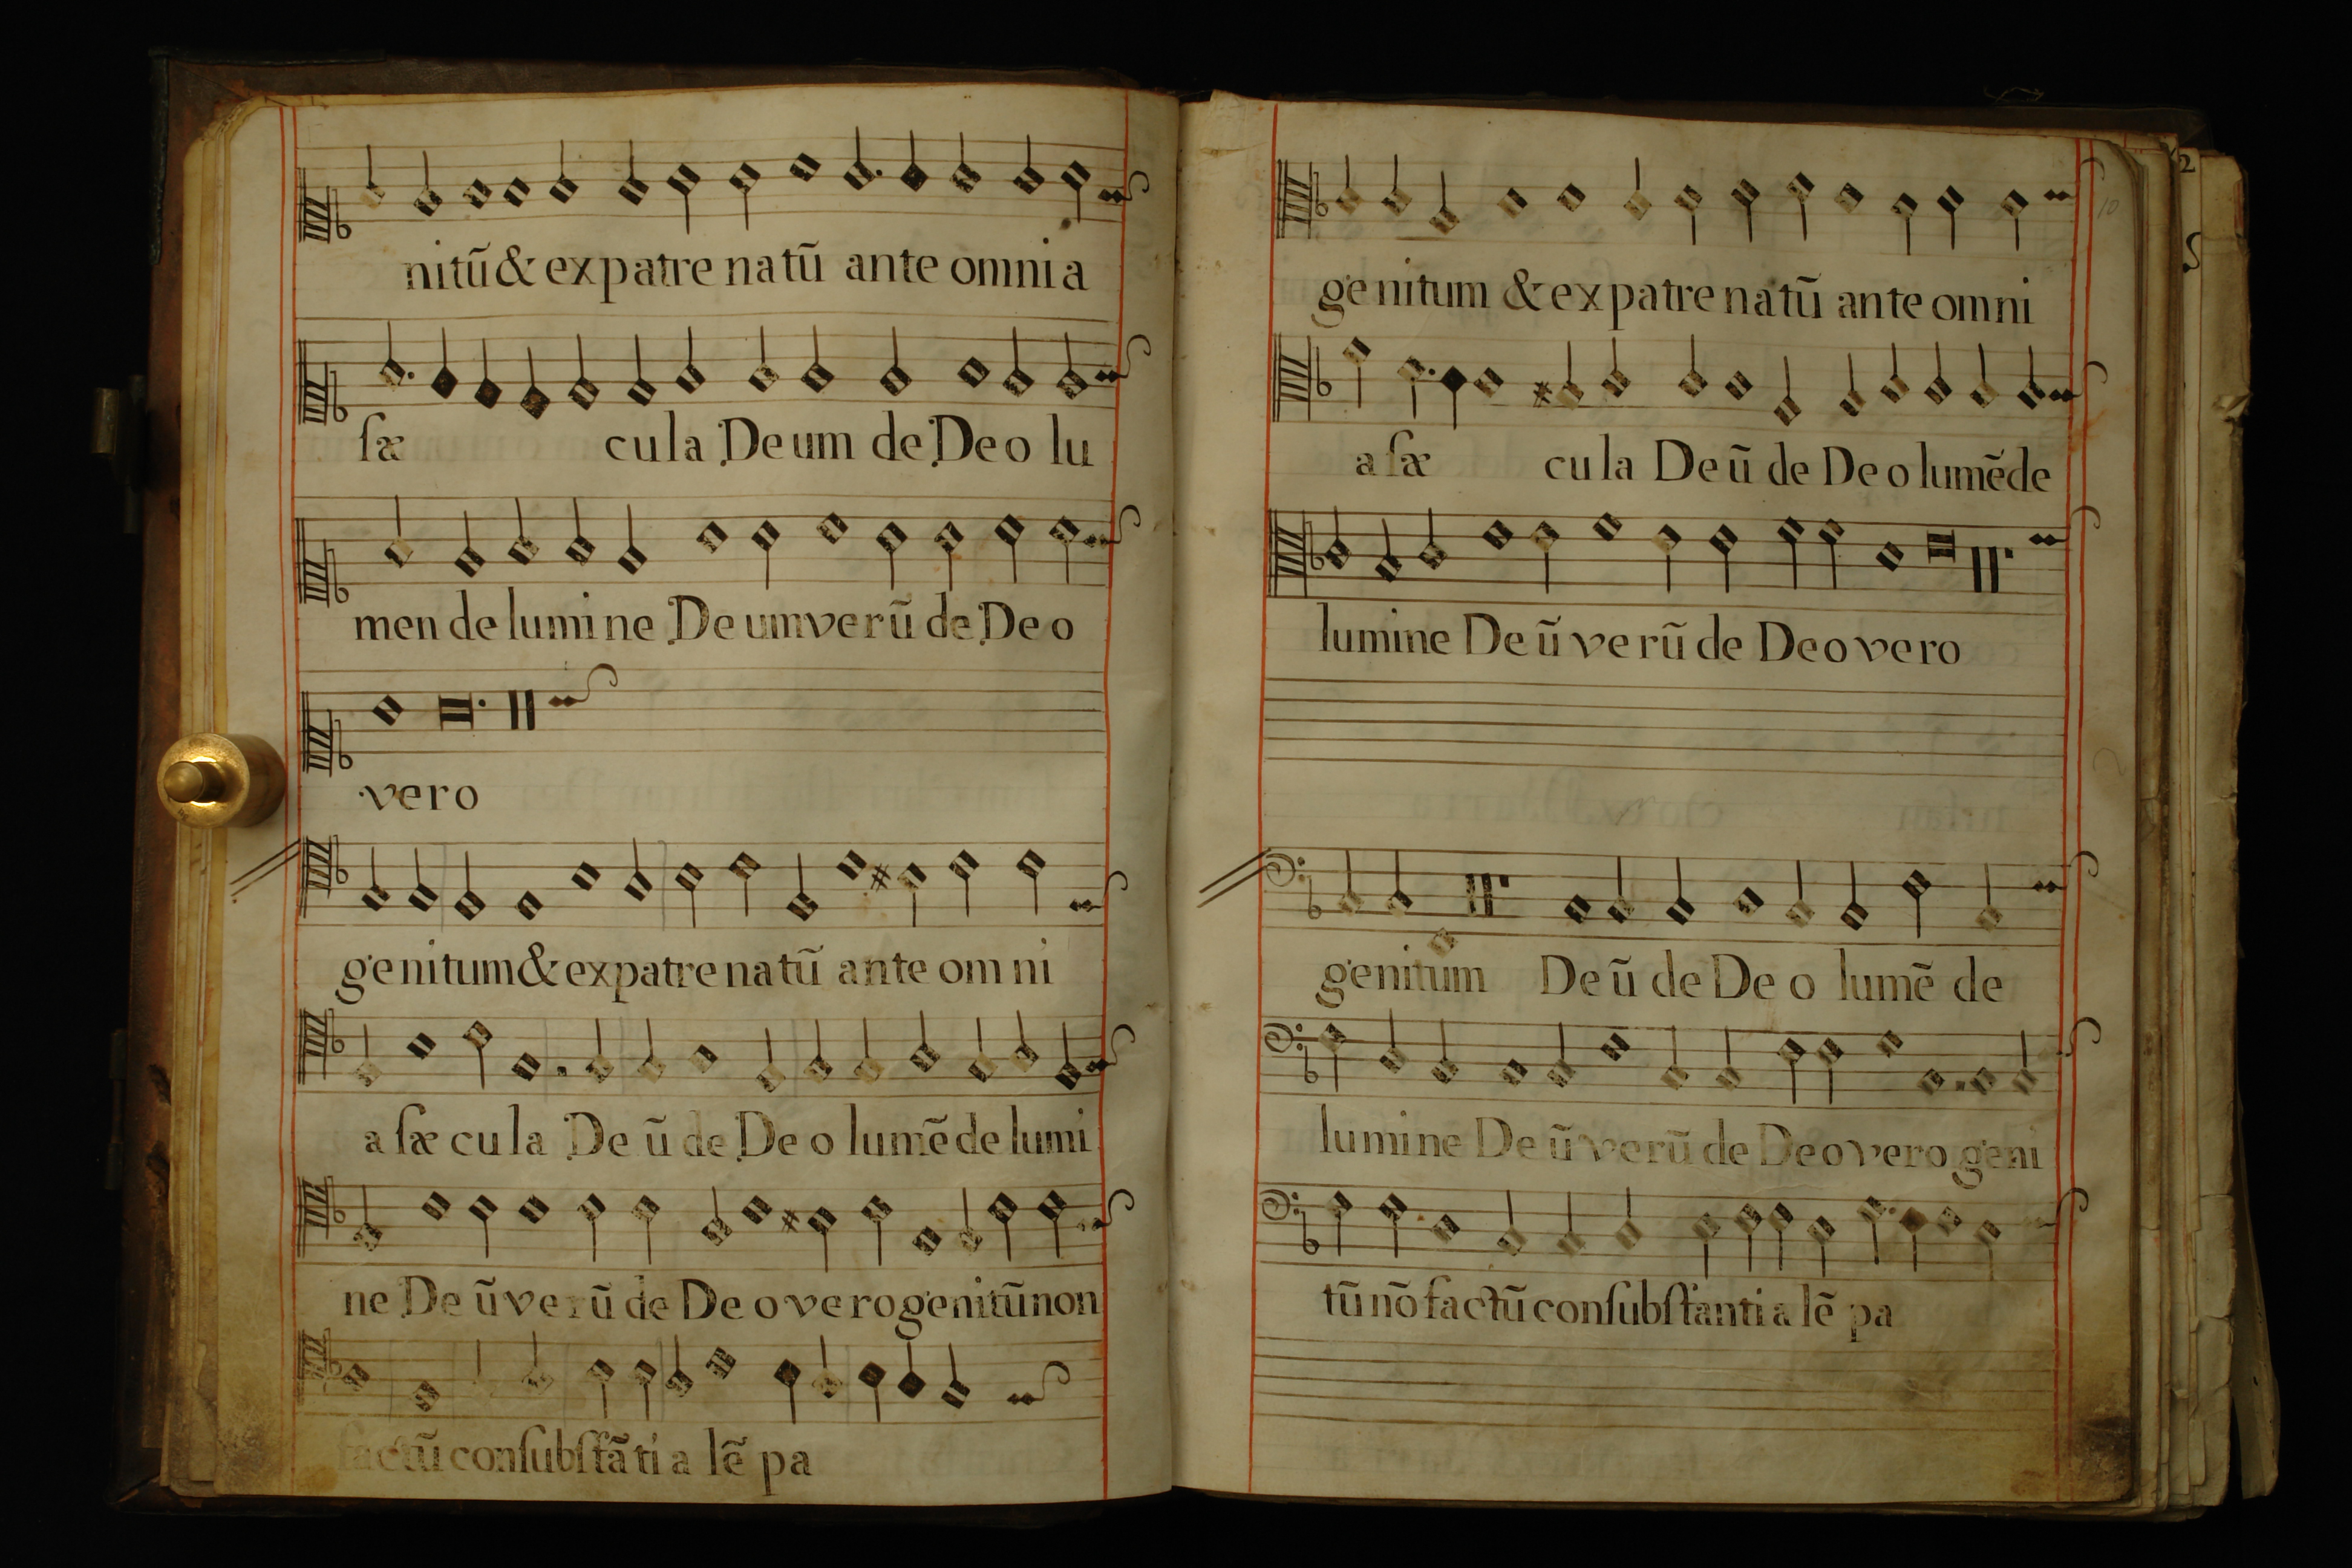 nitũ & ex patre natũ ante omnia
ſæ cula Deum de Deo lu
men de lumine Deum verũ de Deo
vero
genitum & ex patre natũ ante omni
a ſæcula Deũ de Deo lumẽ de lumi
ne Deũ verũ de Deo vero genitũ non
factũ conſubſtãtia lẽ pa
10
genitum & ex patre natũ ante omni
a ſæ cula Deũ de Deo lumẽ de
lumine Deũ verũ de Deo vero
genitum Deũ de Deo lumẽ de
lumine Deũ verũ de Deo vero geni
tũ nõ factũ conſubſtantia lẽ pa
2